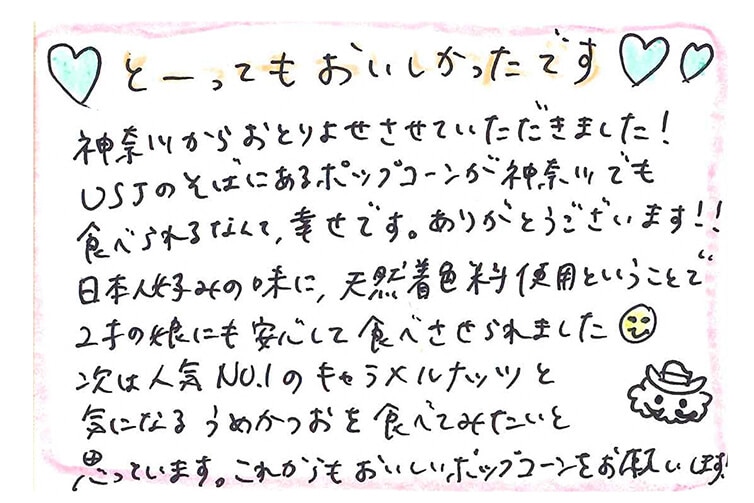 とーってもおいしかったです
神奈川からおとりよせさせていただきました!
USJのそばにあるポップコーンが神奈川でも
食べられるなんて、幸せです。ありがとうございます!!
日本人好みの味に、天然着色料使用ということで
2才の娘にも安心して食べさせられました
次は人気NO.1のキャラメルナッツと
気になるうめかつおを食べてみたいと
思っています。これからもおいしいポップコーンをお願いします!